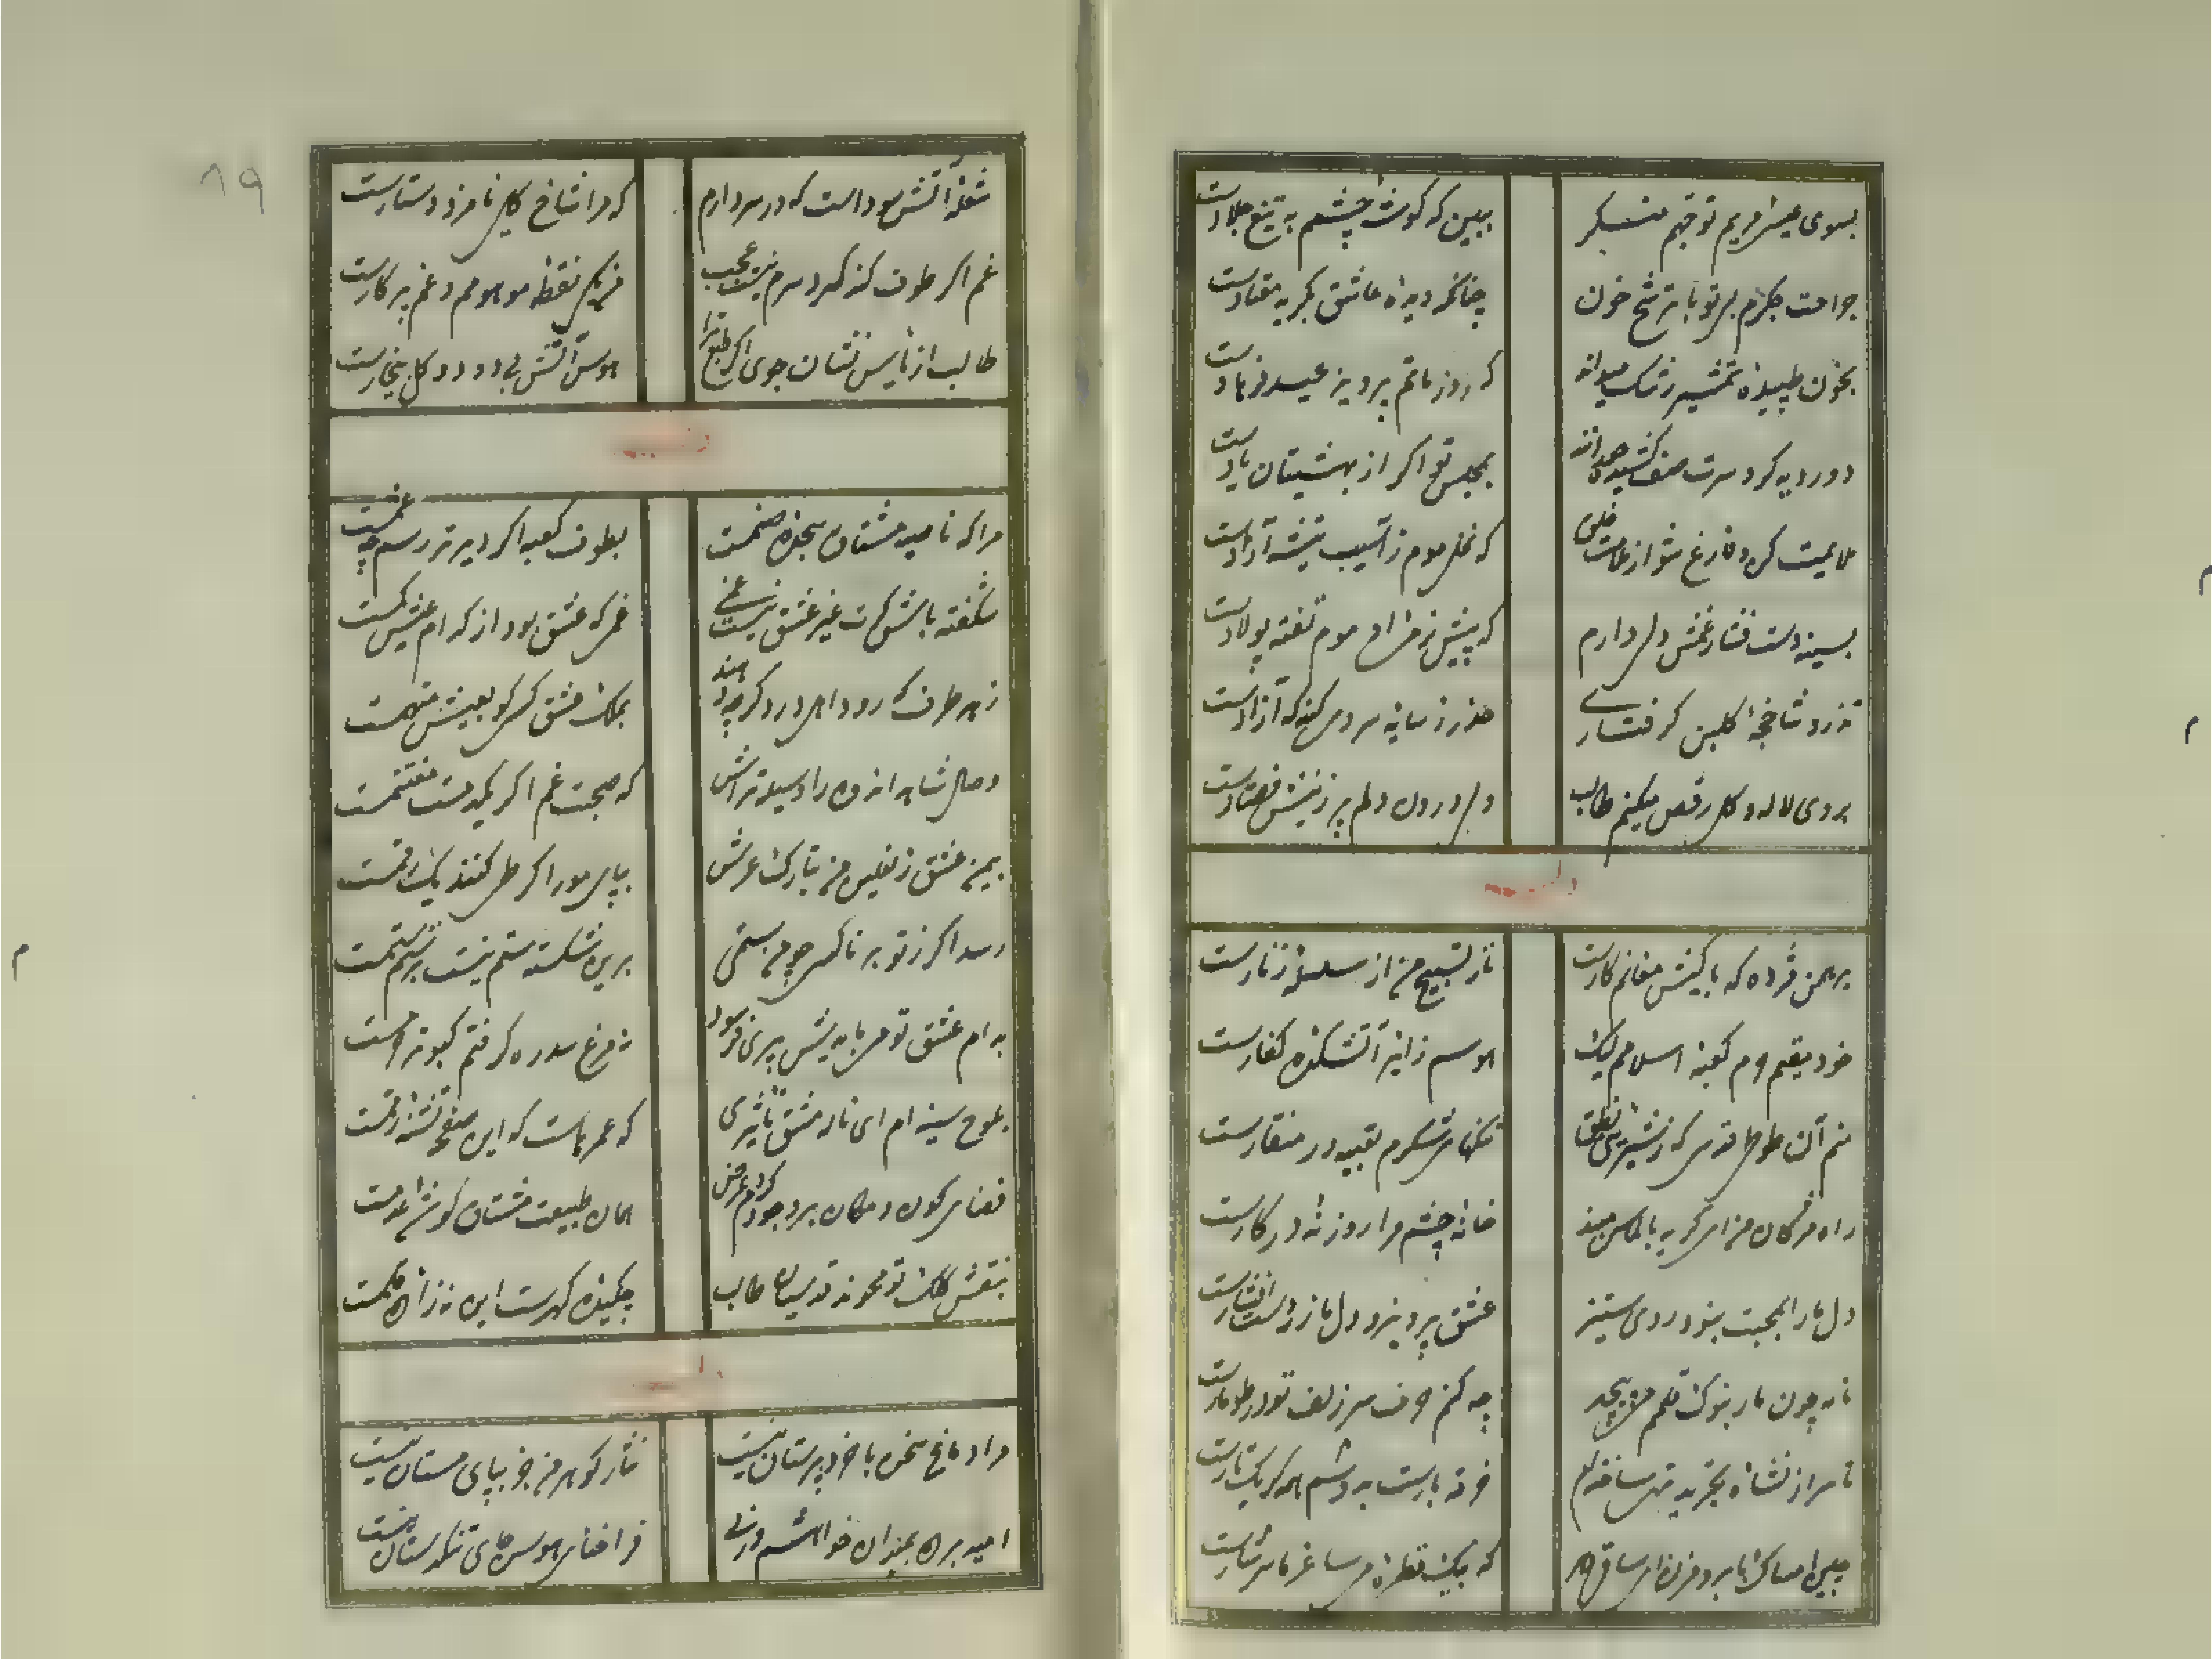 بسوی عیش مریم توجهم منگر
ببین که گوشهٔ چشمم به تیغ جلادست
جراحت جگرم بی تو با ترشح خون
چنانکه دیدهٔ عاشق بگریه معتادست
بخون طپیدهٔ شمشیر رشک میداند
که روز ماتم پرویز عید فرهادست
دو رویه گرد سرت صف کشیده‌اند
بمجلس تو اگر از بهشتیان یادست
ملایمت کن و فارغ شو از ملامت خلق
که نخل موم ز آسیب تیشه آزادست
بسینه دست فشار غمش دلی دارم
که پیش نرمی او موم تفته پولادست
تذرو شاخچهٔ گلبن گرفتاری
حذر ز سایهٔ سروی کند که آزادست
بروی لاله و گل رقص میکنم طالب
ولی درون دلم پر ز نیش فصادست
برهمن مژده که با کیش مغانم کارست
تار تسبیح من از سلسلهٔ زنارست
خود مقیم حرم کعبهٔ اسلامم لیک
هوسم زایر آتشکدهٔ کفارست
منم آن طوطی قدسی که ز شیرینی نطق
تنگهای شکرم تعبیه در منقارست
راه مژگان من ای گریه بالماس مبند
خانهٔ چشم مرا روزنه در کارست
دل ما را بمحبت نبود روی ستیز
عشق پرویز و دل ما ز دست افشارست
نامه چون مار بنوک قلمم می پیچد
چه کنم حرف سر زلف تو در طومارست
تا سر از نشاهٔ تجرید تهی ساخته‌ام
خرقه بارست به دوشم همه گر یک تارست
مبین امساک تنها برو مزن ای ساقی
که بیک قطرهٔ می ساغر ما سرشارست
شعلهٔ آتش سوداست که در سر دارم
که مرا شاخ گلی نامزد دستارست
غم اگر طوف کند گرد سرم نیست عجب
من یکی نقطهٔ موهومم و غم پرگارست
طالب از ما پس نشان جوی اگر طبع ترا
هوس آتش بی دود و گل بیخارست
مرا که ناصیه مشتاق سجدهٔ صنمست
بطوف کعبه اگر دیرتر رسم چه غمست
شگفته باش گرت غیر عشق نیست غمی
غمی که عشق بود از کدام عیش کمست
ز هر طرف که رود اهل درد گرچه بهند
بملک عشق کسی کو بعیش متهمست
وصال شاهد اندوه را وسیله تراش
که صحبت غم اگر یکدمست مغتنمست
بیمن عشق ز نعلین من بتارک عرش
بپای مور اگر طی کنند یک قدمست
رسد اگر ز تو بر ناکسی چو من ستمی
برین شکسته ستم نیست بر ستم ستمست
بدام عشق تو می باید پیش پری فرسود
نه مرغ سدره گرفتم کبوتر حرمست
بلوح سینه‌ام ای نار عشق تاثیری
که عمرهاست که این صفحه تشنهٔ رقمست
فضای کون و مکان بر وجود کردم عرض
همان طبیعت مشتاق گوشهٔ عدمست
بنقش کلک تو محوند قدسیان طالب
چکیدهٔ گهرست این نه زادهٔ قلمست
مرا دماغ سخن با خودپرستان نیست
نثار گوهر من جز بپای مستان نیست
امید بر ده بمیزان خواهشم وزنی
فراخنای هوس جای تنگدستان نیست